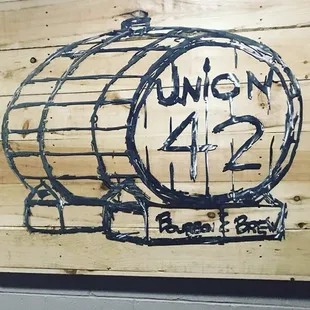 UNION
42
BOURBON & BREW